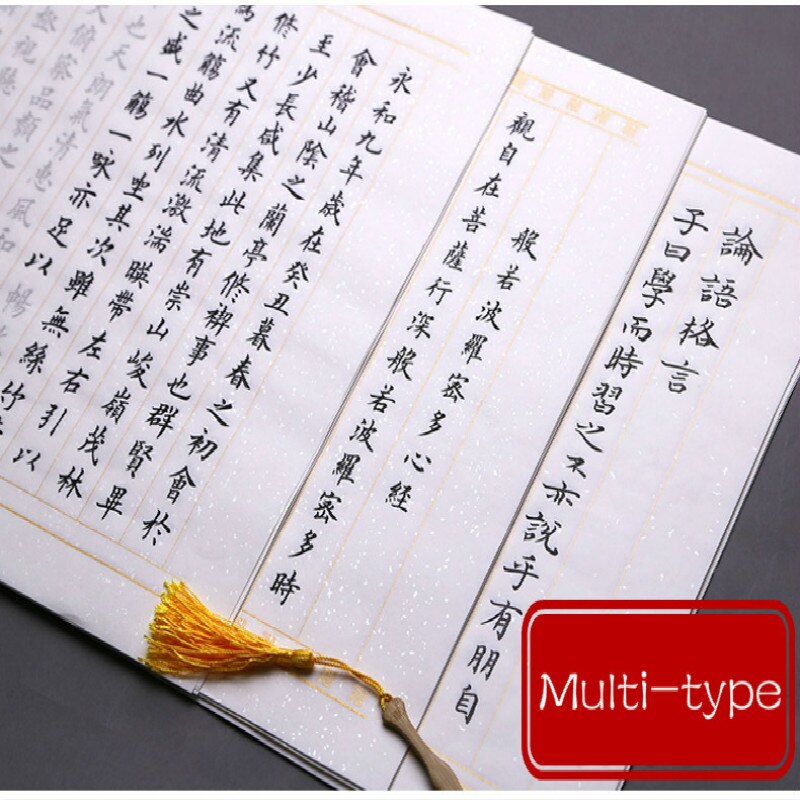 論語格言
子曰學而時習之不亦說乎有朋自
般若波羅密多心經
觀自在菩薩行深般若波羅密多時
永和九年歲在癸丑暮春之初會於
會稽山陰之蘭亭修禊事也群賢畢
至少長咸集此地有崇山峻嶺茂林
修竹又有清流激湍暎帶左右引以
為流觴曲水列坐其次雖無絲竹
之盛一觴一咏亦足以
也天朗氣清惠風和暢
大俯察品類之
視聽
Multi-type